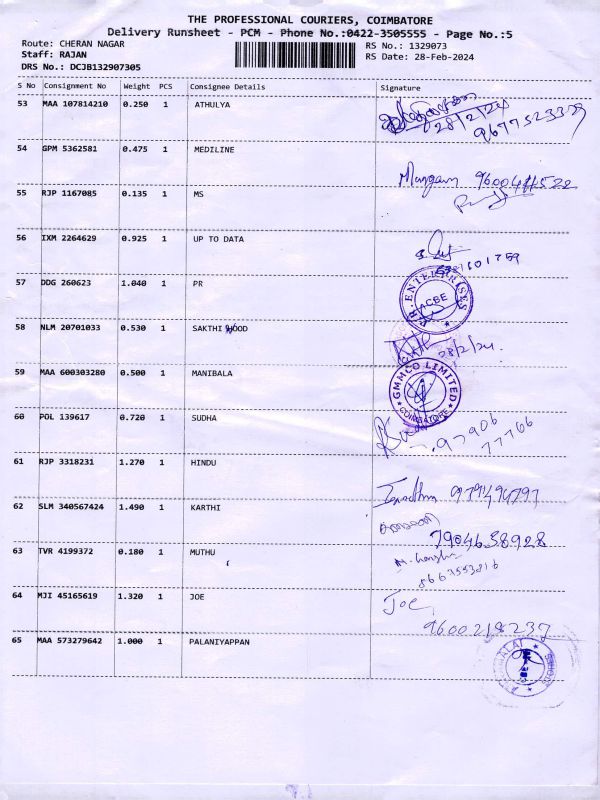 THE PROFESSIONAL COURIERS, COIMBATORE
Delivery Runsheet - PCM - Phone No.:0422-3505555 - Page No.:5
Route: CHERAN NAGAR RS No.: 1329073
Staff: RAJAN RS Date: 28-Feb-2024
DRS No.: DCJB132907305
S No Consignment No Weight PCS Consignee Details Signature
53 MAA 107814210 0.250 1 ATHULYA
28/2/24
9677523329
54 GPM 5362581 0.475 1 MEDILINE
55 RJP 1167085 0.135 1 MS
56 IXM 2264629 0.925 1 UP TO DATA
57 DDG 260623 1.040 1 PR
ENTERPRISES
ACBE
58 NLM 20701033 0.530 1 SAKTHI WOOD
28/2/24.
59 MAA 600303280 0.500 1 MANIBALA
GMMCO LIMITED
COIMBATORE
60 POL 139617 0.720 1 SUDHA
97906
77766
61 RJP 3318231 1.270 1 HINDU
62 SLM 340567424 1.490 1 KARTHI
7904638928
63 TVR 4199372 0.180 1 MUTHU
8667553816
64 MJI 45165619 1.320 1 JOE
Joe
9600218237
65 MAA 573279642 1.000 1 PALANIYAPPAN